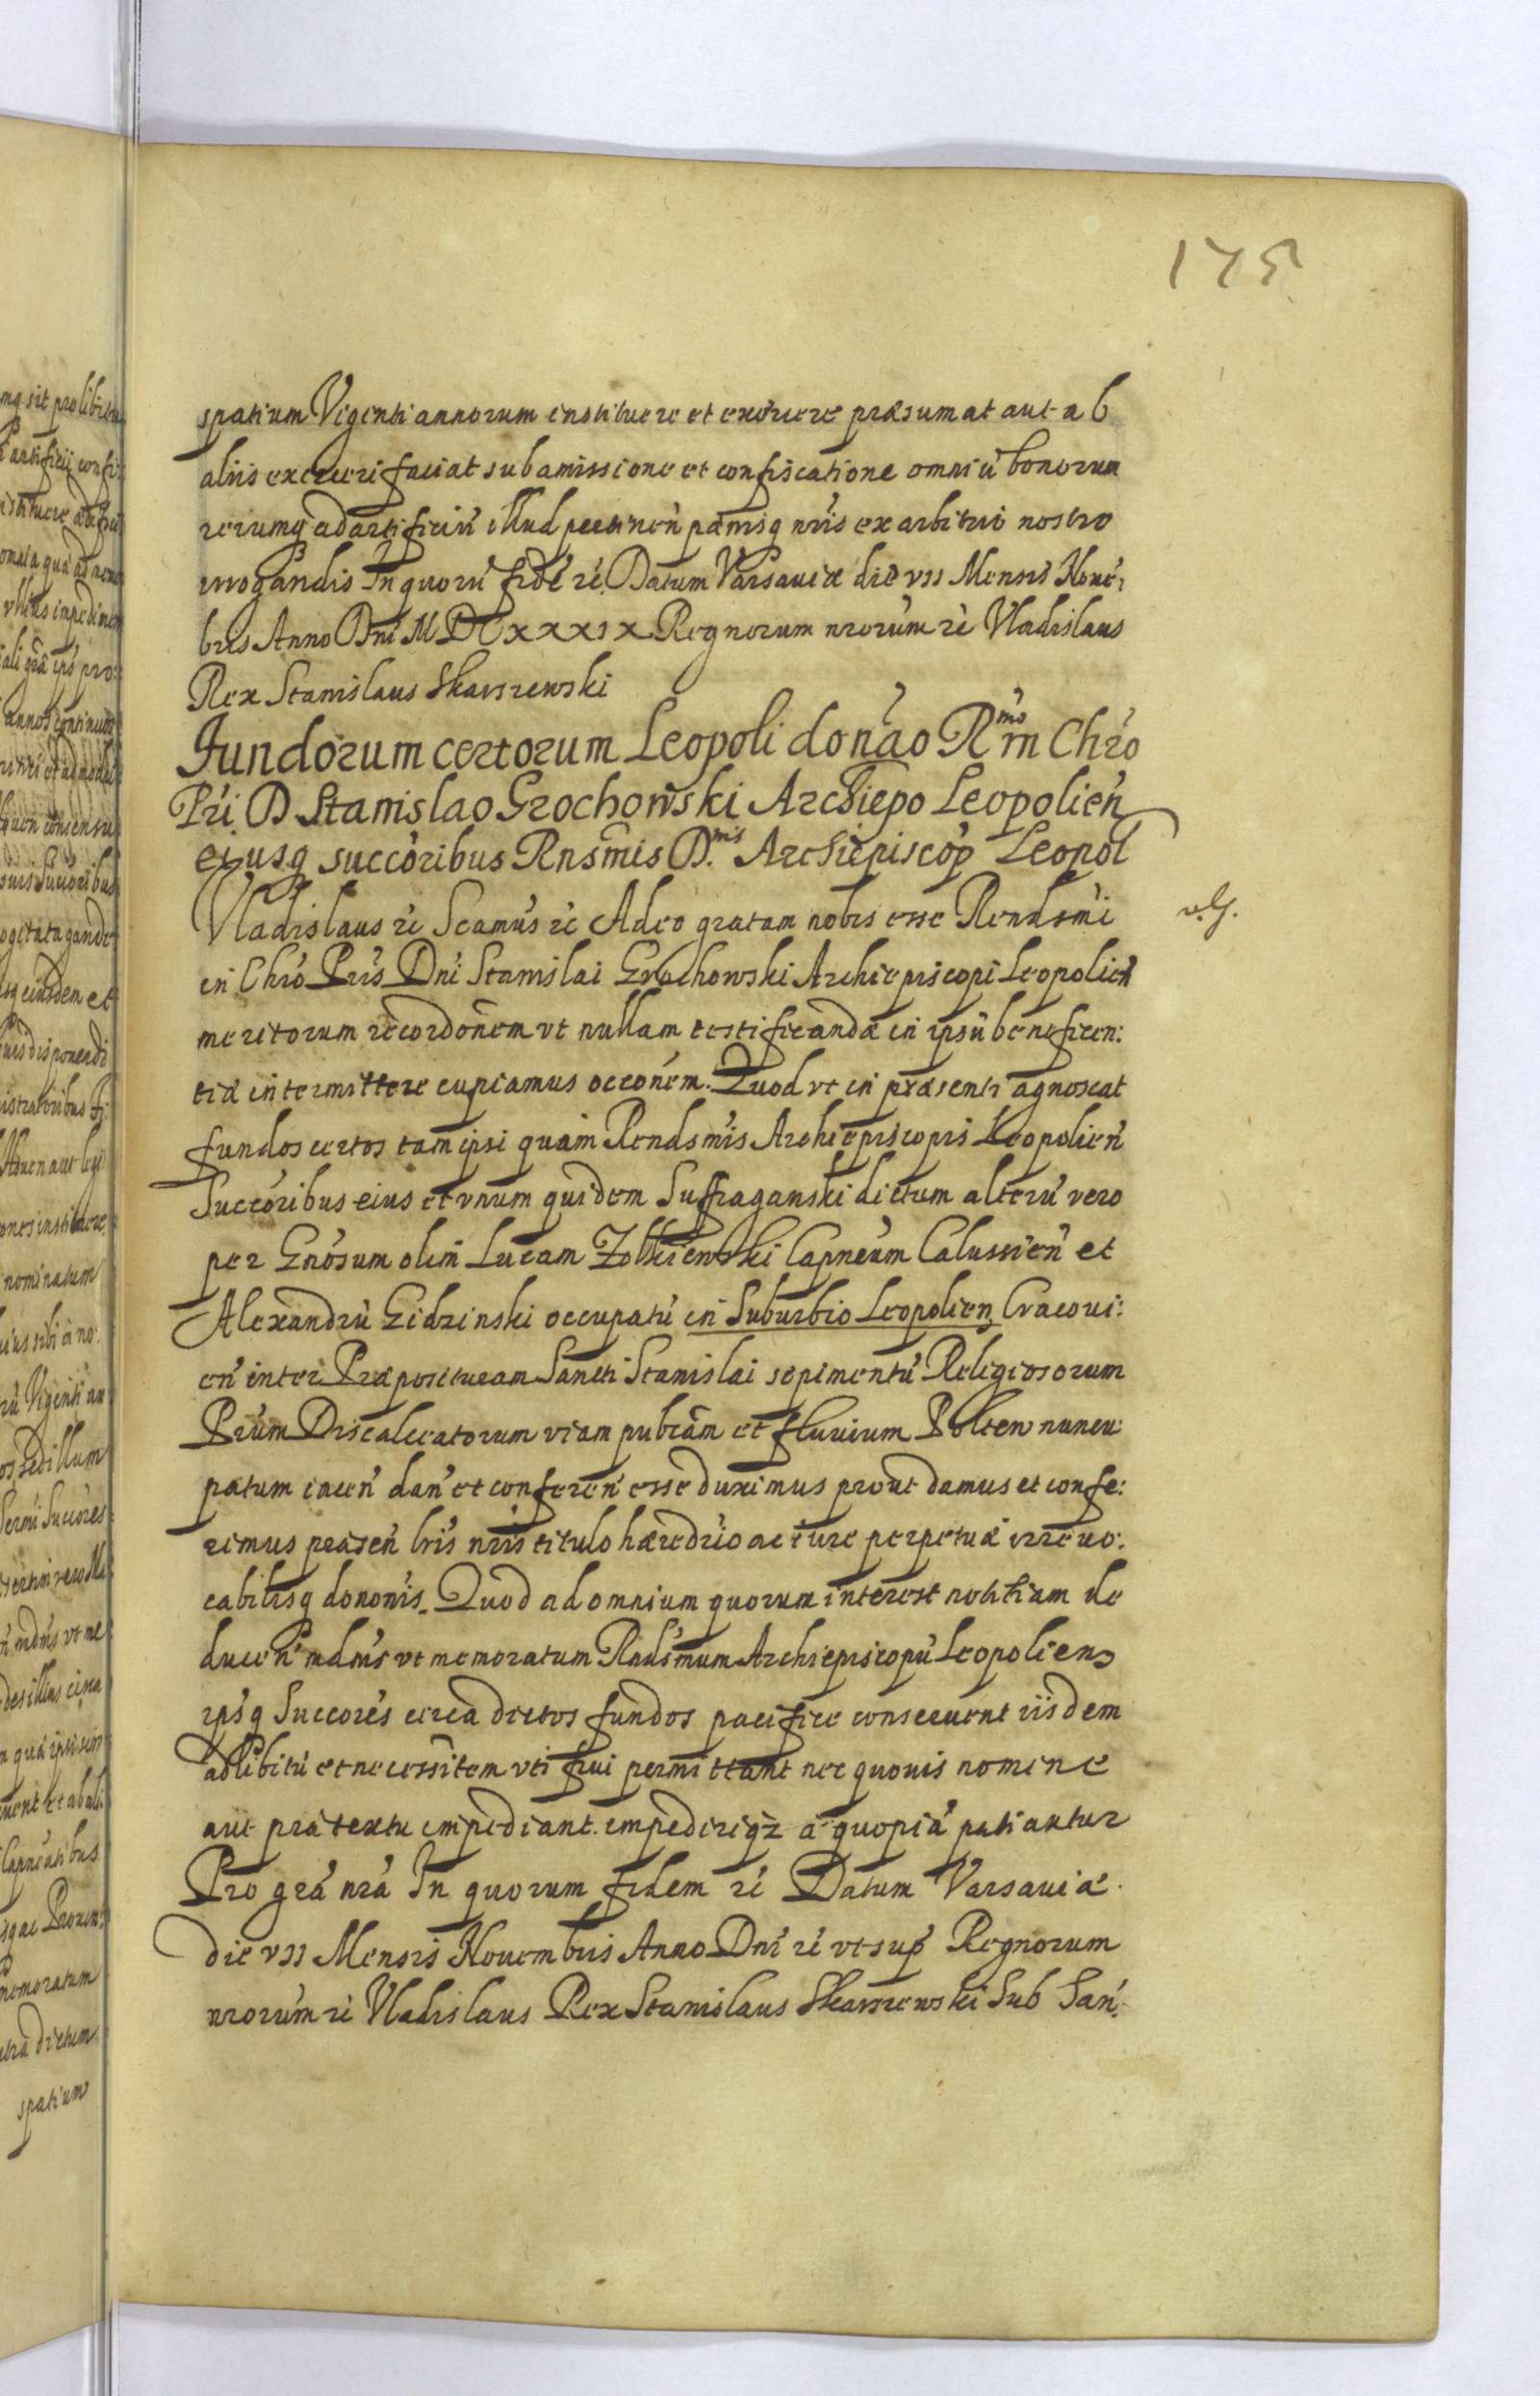 175
spatium Vigenti annorum instituere et exercere præsumat aut ab
aliis exerceri faciat sub amissione et confiscatione omniū bonorum
rerumq̃ ad artificiū illud pertineñ pænisq nr̃is ex arbitrio nostro
irrogandis In quorū fidē rė. Datum Varsaviæ die VII Mensis Nove:
bris Anno Dnī MDCXXXIX Regnorum nrorum rė Vladislaus
Rex Stanislaus Skarszewski
Fundorum certorum Leopoli donāo Rmo in Chrō
Prī. D Stanislao Grochowski Archiepo Leopolień
ejusq succoribus Rnsmis D.mis Archiepiscop Leopol
Vladislaus rė Scamus rė Adeo gratam nobis esse Rendsmi
in Chrō Pris Dnī Stanislai Grochowski Archiepiscopi Leopolień
meritorum recordonem ut nullam testificandæ in ipsū beneficen:
tiæ intermittere cupiamus occonem. Quod ut in præsenti agnoscat
fundos certos tam ipsi quam Rendsmis Archiepiscopis Leopolień
Succoribus eius et unum quidem Suffraganski dictum alterū vero
per Gnosum olim Lucam Zolkiewski Capneum Calussień et
Alexandrū Gidzinski occupatū in Suburbio Leopolien Cracovi:
eń inter Præposituram Sancti Stanislai sepimentū Religiosorum
Prum Discalceatorum viam publcam et fluvium Polten nuncu
patum iaceń dań et confereń esse duximus prout damus et confe:
rimus præseń lris nris titulo hæredrio ac iure perpetuæ irrevo:
cabilisq dononis. Quod ad omnium quorum interest notitiam de
duceń mdmus ut memoratum Rndsmum Archiepiscopū Leopolien
ipsq Succores circa dictos fundos pacifice conservent iisdem
ad libitū et necessitem uti frui permittant nec quovis nomine
aut prætextu impediant impedirique a quopiā patiantur
Pro gra nra In quorum fidem rė Datum Varsaviæ.
die VII Mensis Novembris Anno Dnī rė ut sup Regnorum
nrorum rė Vladislaus Rex Stanislaus Skarszewski Sub San: